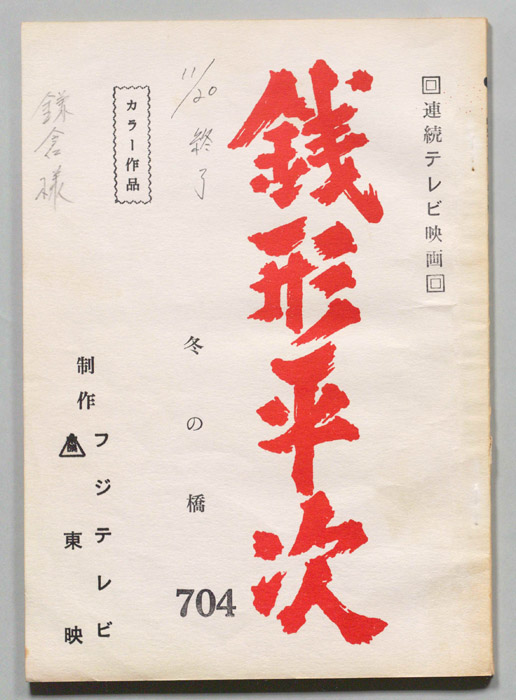 回連続テレビ映画回
銭形平次
11/20 終了
冬の橋
704
カラー作品
鎌倉様
制作
フジテレビ
東映